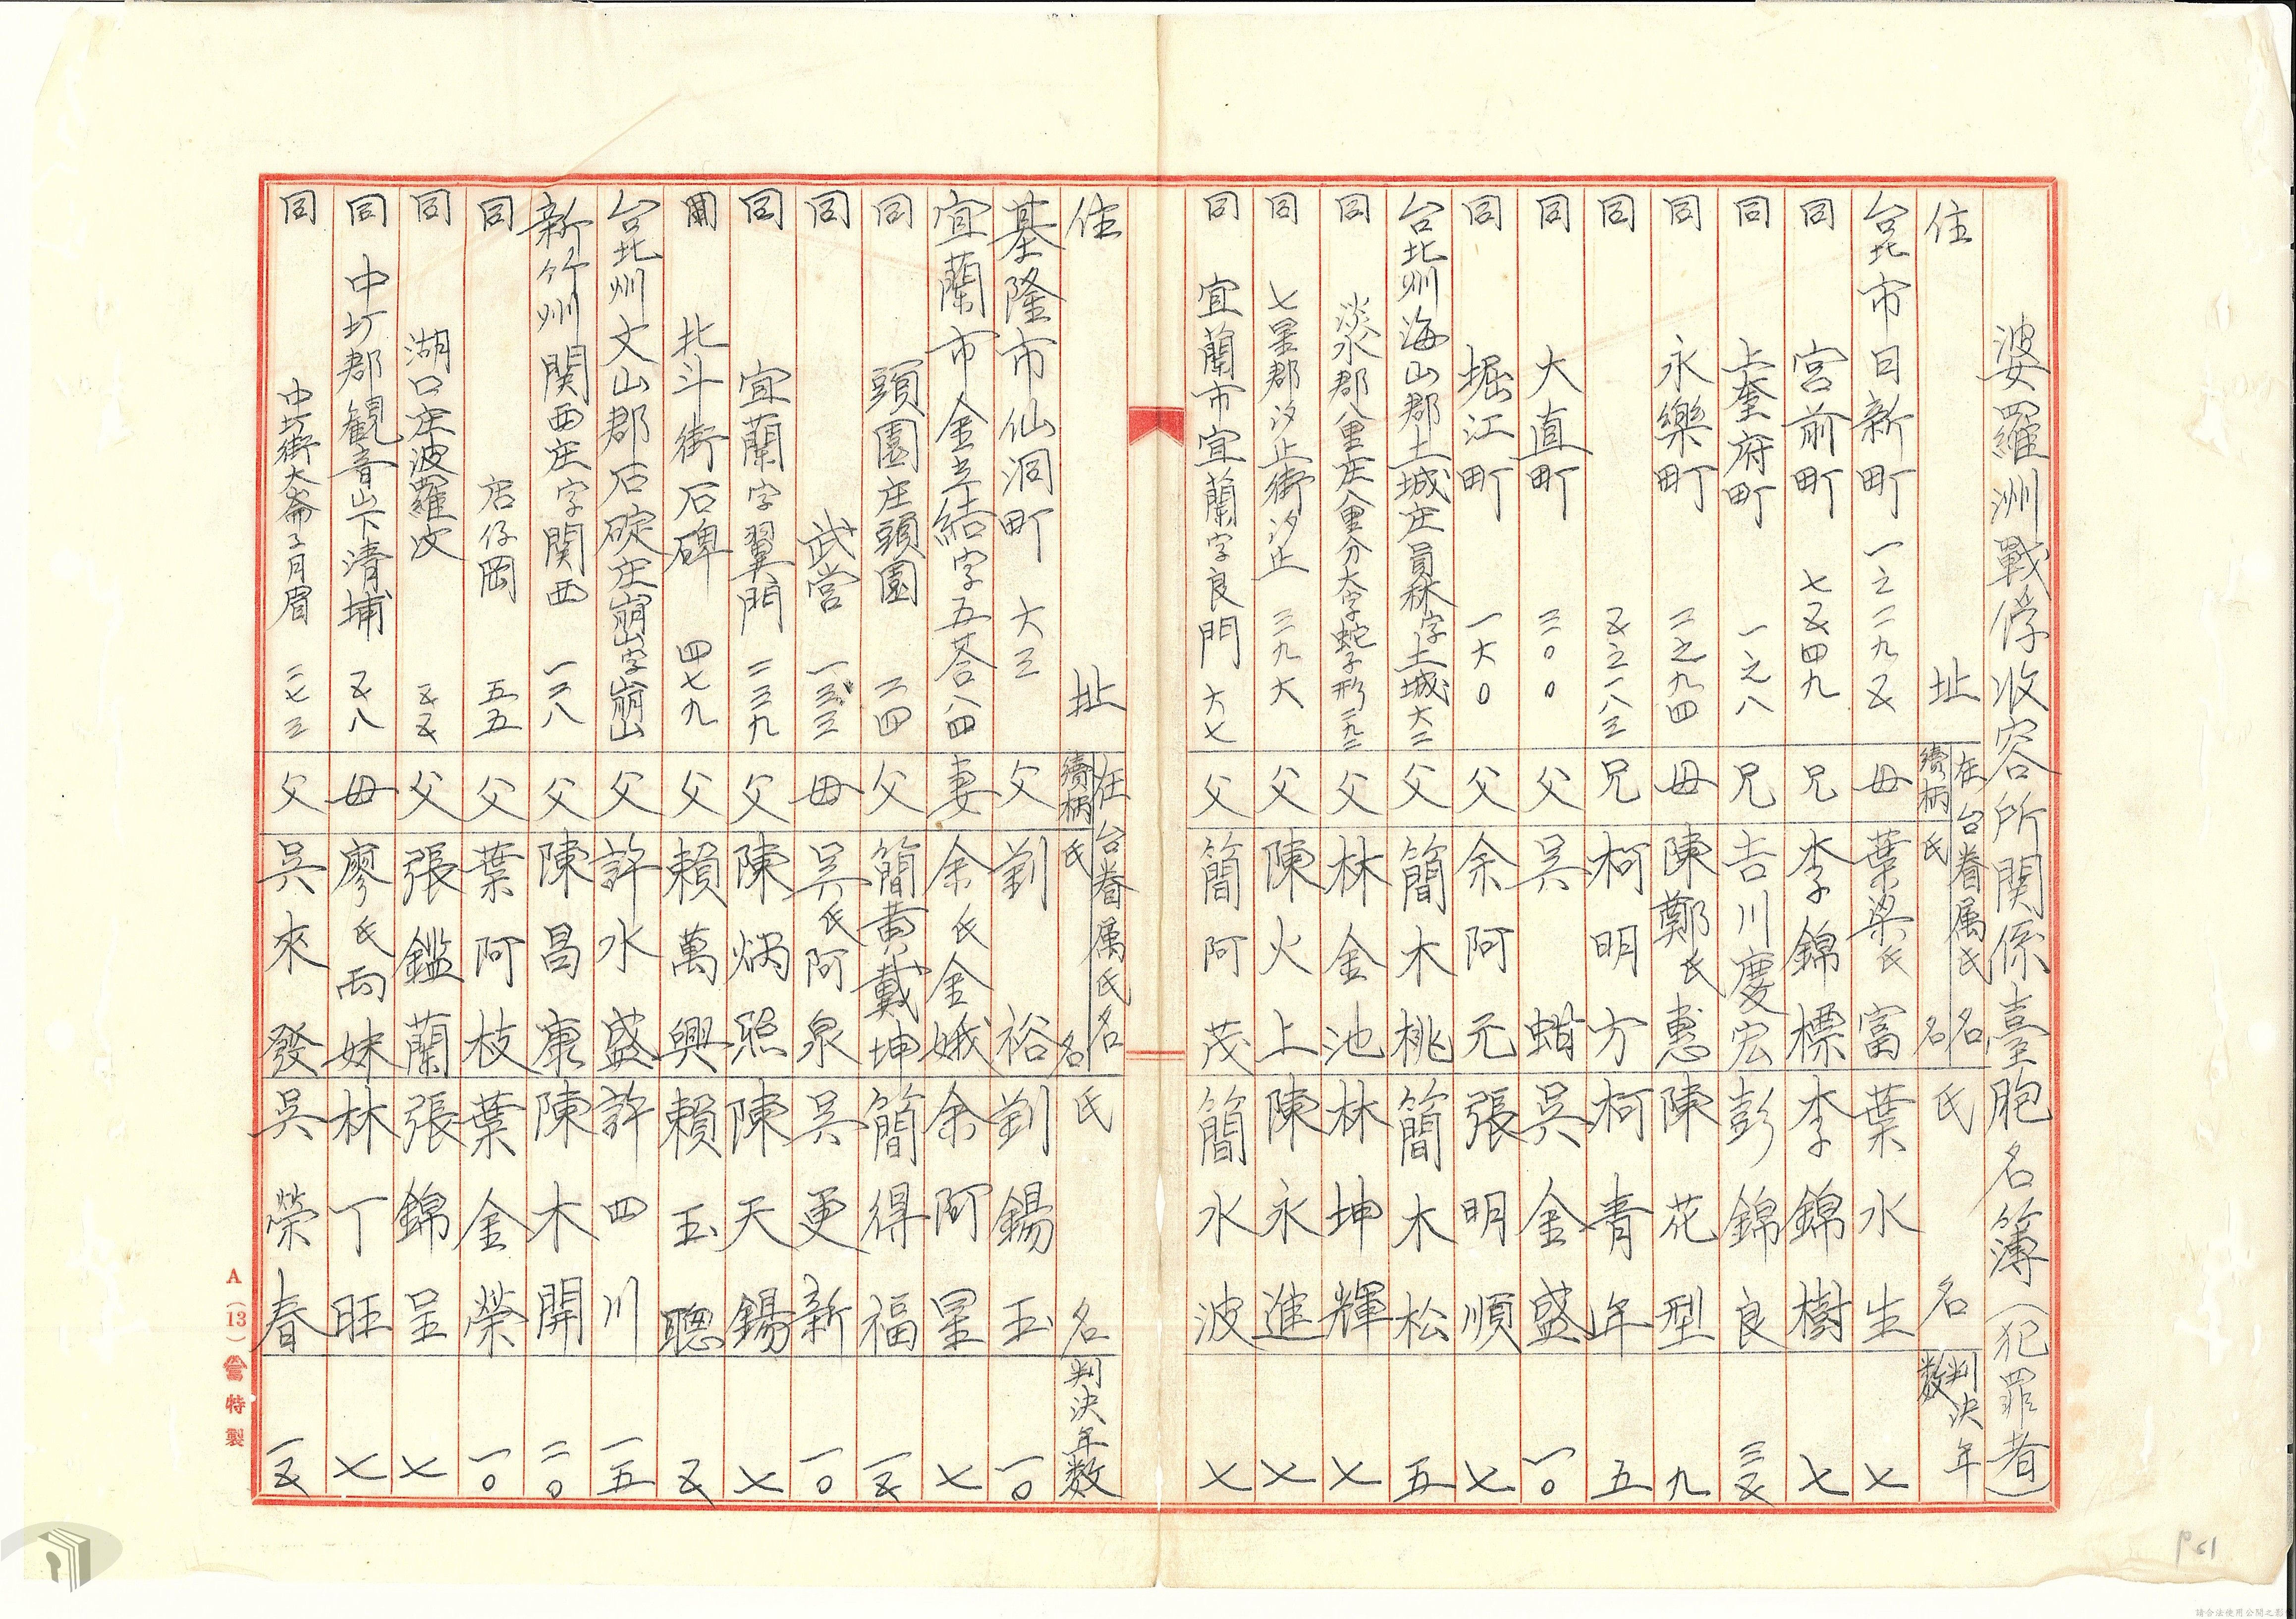 婆羅洲戰俘收容所関係臺胞名簿（犯罪者）
住 址 在台眷属氏名 續柄 氏 名 氏 名 判決年数
台北市日新町 一之二九五 母 葉梁氏富 葉水生 七
同 宮前町 七五四九 兄 李錦標 李錦樹 七
同 上奎府町 一之八 兄 吉川慶宏 彭錦良
同 永樂町 二之九四 母 陳鄭氏惠 陳花型 九
同 五之一八三 兄 柯明方 柯青年 五
同 大直町 二〇〇 父 吳 蚶 吳金盛 一〇
同 堀江町 一六〇 父 余阿元 張明順 七
台北州海山郡土城庄員林字土城六二 父 簡木桃 簡木松 五
同 淡水郡八里庄八里分大字蛇子形 父 林金池 林坤輝 七
同 七星郡汐止街汐止 三九六 父 陳火上 陳永進 七
同 宜蘭市宜蘭字良門 六七 父 簡阿茂 簡水波 七
住 址 在台眷属氏名 續柄 氏 名 氏 名 判決年数
基隆市仙洞町 六三 父 劉 裕 劉錫玉 一〇
宜蘭市金六結字五荅八四 妻 余氏金娥 余阿星 七
同 頭園庄頭園 二四 父 簡黄戴坤 簡得福 一五
同 武営 母 吳氏阿泉 吳更新 一〇
同 宜蘭字巽門 二三九 父 陳炳照 陳天錫 七
同 北斗街石碑 四七九 父 賴萬興 賴玉聰 五
台北州文山郡石碇庄崩山字崩山 父 許水盛 許四川 一五
新竹州関西庄字関西 一六八 父 陳昌康 陳木開 二〇
同 店仔岡 五五 父 葉阿枝 葉金榮 一〇
同 湖口庄波羅汶 五五 父 張鑑蘭 張錦呈 七
同 中圻郡観音山下清埔 五八 母 廖氏雨妹 林丁旺 七
同 中圻街大崙子月眉 二七三 父 吳來發 吳榮春 一五
A（13）營特製
P61